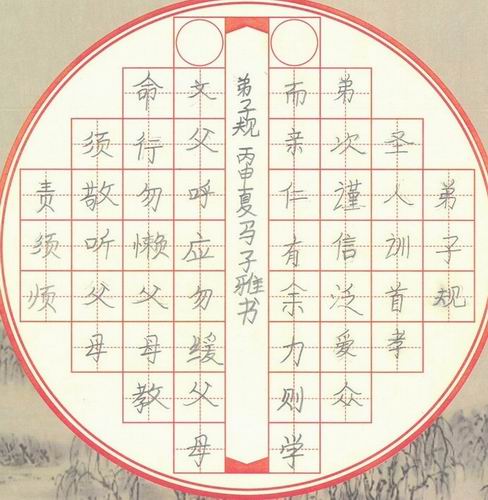 弟子规
圣人训首孝
弟次谨信泛爱众
而亲仁有余力则学
弟子规 丙申夏马子雅书
文父呼应勿缓父母
命行勿懒父母教
须敬听父母
责须顺